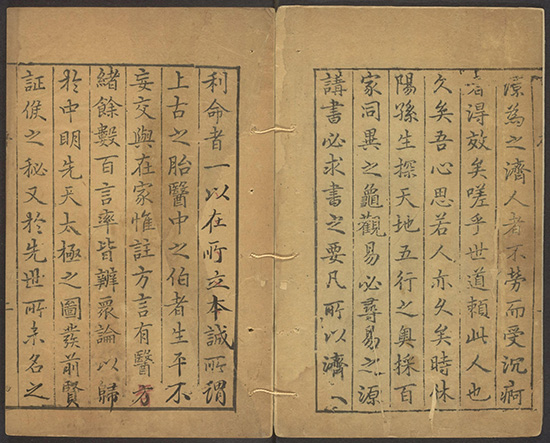 為之濟人者不勞而受沉痾
者得效矣嗟乎世道賴此人也
久矣吾心思若人亦久矣時休
陽孫生探天地五行之奧採百
家同異之龜觀易必尋易之源
講書必求書之要凡所以濟人
利命者一以在所立本誠所謂
上古之胎醫中之伯者生平不
妄交與在家惟註方言有醫方
緒餘數百言率皆辨眾論以歸
於中明先天太極之圖發前賢
証候之秘又於先世所未名之